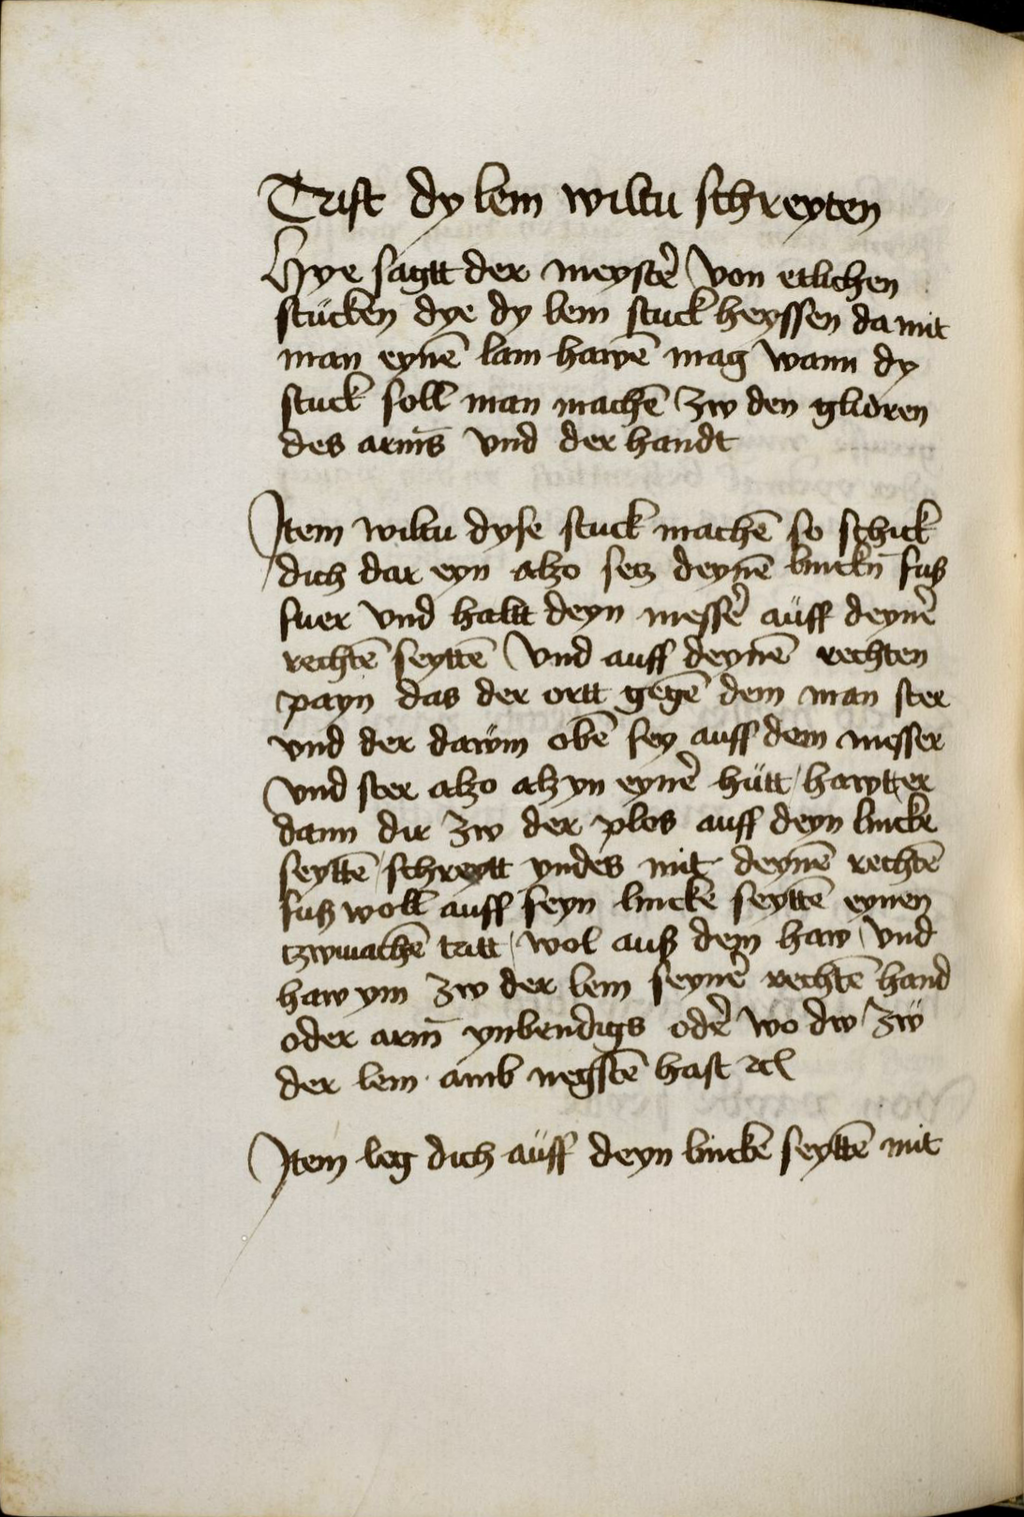 Trist dy lem wiltu schreyten
Hye sagtt der meystẽ von etlichen
stücken dye dy lem stuck heyssen da mit
man eynē lam hawē mag wann dy
stuck soll man machē zw den glidren
des arm̄s vnd der handt
Item wiltu dyse stuck machē so schick
dich dar eyn alzo setz deynē linckn̄ fuß
fuer vnd haltt deyn messẽ aüff deynẽ
rechtē seyttē vnd auff deynē rechten
payn das der ortt gegē dem man ster
vnd der dawm obē sey auff dem messer
vnd ster alzo alz yn eynẽ hütt / hawtt er
dann dir zw der plos auff deyn lincke
seyttē / schreytt yndes mit deynē rechtē
fuß woll auff seyn lincke seyttē eynen
tzwuachē tritt / wol auß dem haw / vnd
haw ym zw der lem seynẽ rechtē hand
oder arm̄ ynbendigs odẽ wo dw zẅ
der lem amb negstē hast ꝛcl
Item leg dich aüff deyn linckē seyttē mit